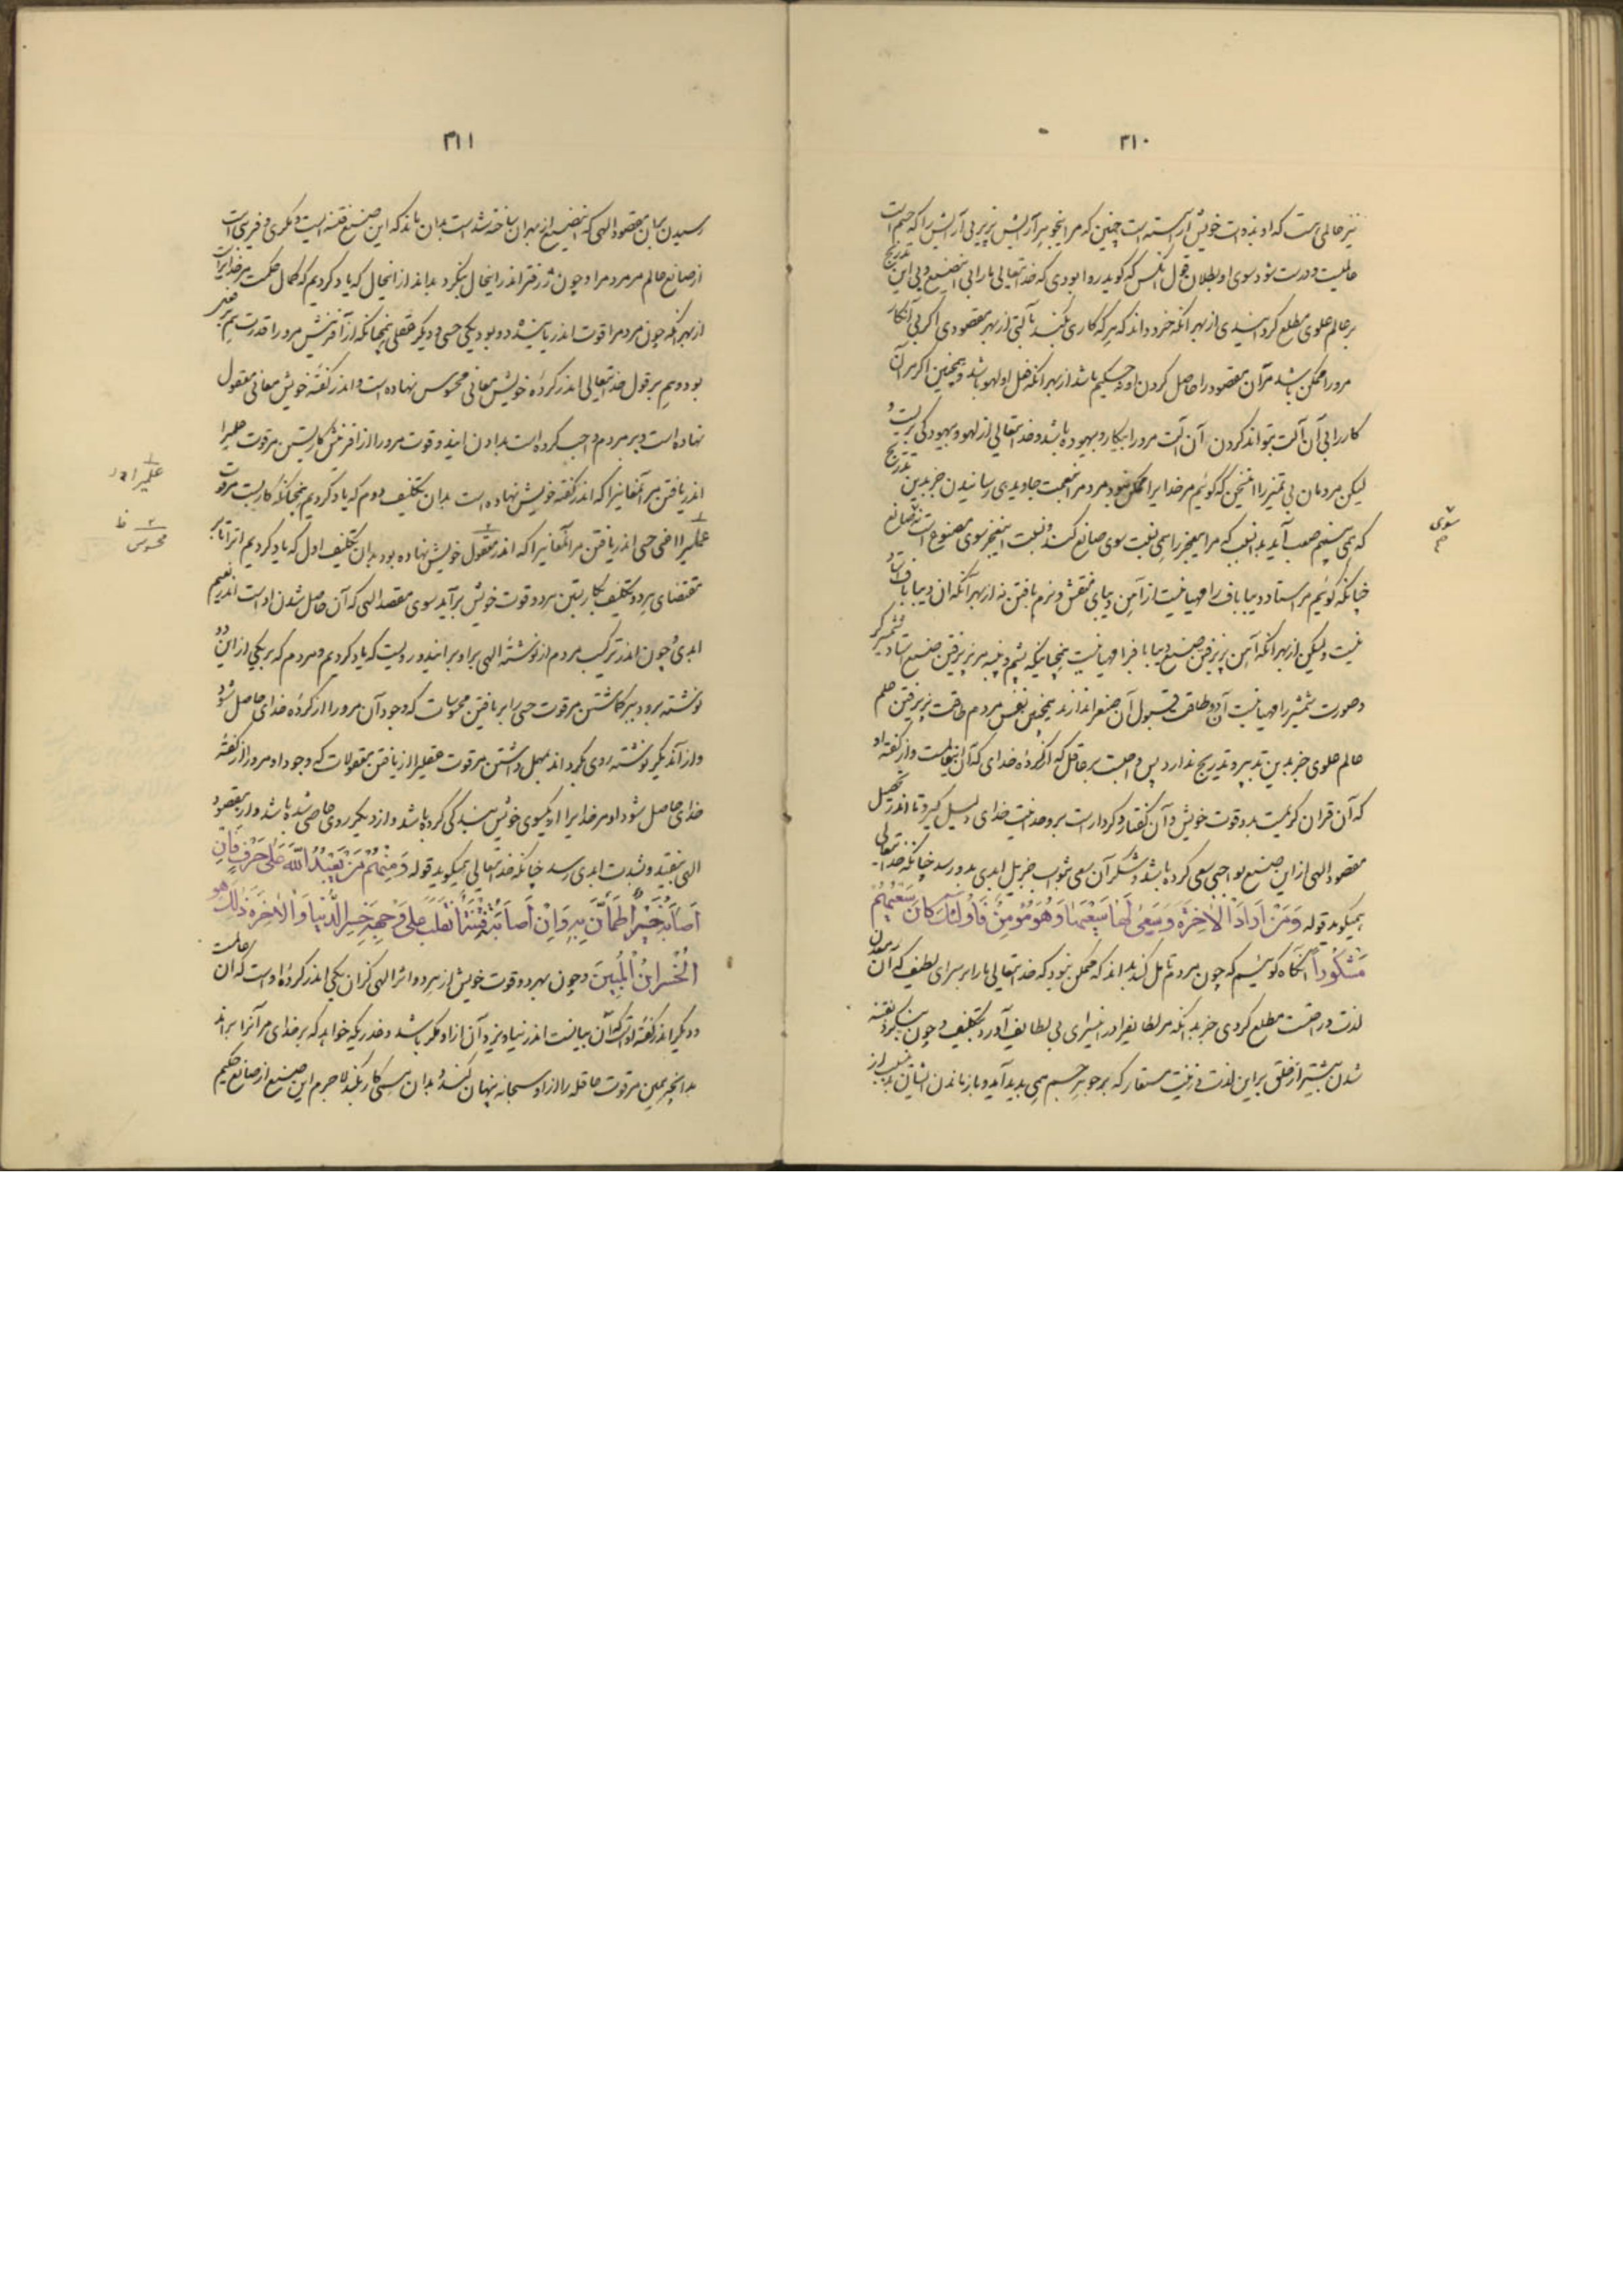 ۳۱۰
نیز عالمی هست که او بذات خویش آراسته است چنین که مر این جوهر آرایش پذیر بی آرایش را که جسم است
عالمیست و درست شود سوی او بطلان قول آنکس که گوید روا بودی که خدایتعالی ما را بی این صنیع و بی این تدریج
بر عالم علوی مطلع گردانیدی از بهر آنکه خرد داند که هر که کاری بکند بآلتی از بهر مقصودی اگر بی آن کار
مرو را ممکن باشد مر آن مقصود را حاصل کردن او نه حکیم باشد از بهر آنکه فعل او لهو باشد و همچنین اگر مر آن
کار را بی آن آلت بتواند کردن آن آلت مرو را بیکار و بیهوده باشد و خدایتعالی از لهو و بیهودگی بریست و
لیکن مردمان بی تمیز را این سخن که گوئیم مر خدایرا ممکن نبود مر مردم را بنعمت جاویدی رسانیدن جز بدین تدریج
که همی بینیم صعب آید بدانسبب که مر این عجز را همی نسبت سوی صانع کنند و نسبت این عجز سوی مصنوع است نه صانع
چنانکه گوئیم مر استاد دیبا باف را مهیا نیست از آهن دیبای منقش و نرم بافتن نه از بهر آنکه آن دیبا باف استاد
نیست ولیکن از بهر آنکه آهن پذیرفتن صنیع دیبا باف را مهیا نیست همچنانکه پشم و پنبه مر پذیرفتن صنیع استاد شمشیرگر
و صورت شمشیر را مهیا نیست آن دو طاقت قبول آن صنع را ندارند همچنین نفس مردم طاقت پذیرفتن علم
عالم علوی جز بدین تدبیر و تدریج ندارد پس واجبست بر عاقل که از کرده خدای که آن این عالمست و از گفته او
که آن قران کریمست بدو قوت خویش و آن گفتار و کردار است بر وحدانیت خدای دلیل گیرد تا اندر تحصیل
مقصود الهی از این صنیع بواجبی سعی کرده باشد و شکر آن سعی بثواب جزیل ابدی بدو رسد چنانکه خدایتعالی
همیگوید قوله وَمَنْ اَرَادَ الْاٰخِرَةَ وَسَعٰی لَهَا سَعْیَهَا وَهُوَ مُؤْمِنٌ فَاُولٰئِكَ كَانَ سَعْیُهُمْ
مَشْكُوراً آنگاه گوئیم که چون مردم تأمل کند بداند که ممکن نبود که خدایتعالی ما را بر سرای لطیف که آن معدن
لذت و راحتست مطلع کردی جز بدانکه مر لطایف را در این سرای بی لطایف آورد بتکلیف و چون بنگرد بفتنه
شدن بیشتر از خلق بر این لذت و زینت مستعار که بر جوهر جسم همی پدید آید و باز ماندن ایشان بدین سبب از
سوی
۳۱۱
رسیدن بدان مقصود الهی که این صنیع از بهر آن ساخته شده است بدان ماند که این صنیع فتنه ایست و مکری و فریبی است
از صانع عالم مر مردم را و چون ژرفتر اندر این حال بنگرد بداند از این حال که یاد کردیم که کمال حکمت مر خدایراست
از بهر آنکه چون مردم را قوت اندر یابنده دو بود یکی حسی و دیگر عقلی همچنانکه از آفرینش مرو را قدرت بر
بود و بهم بر قول خدایتعالی اندر کرده خویش معانی محسوس نهاده است و اندر گفته خویش معانی معقول
نهاده است و بر مردم واجب کرده است بدادن این دو قوت مرو را از آفرینش کار بستن مر قوت علمیرا
اندر یافتن مر آنمعانیرا که اندر گفته خویش نهاده است بدان تکلیف دوم که یاد کردیم همچنانکه کار بست مر قوت
عملیرا اعنی حسی اندر یافتن مر آنمعانیرا که اندر معقول خویش نهاده بود بدان تکلیف اول که یاد کردیم
مقتضای هر دو تکلیف بکار بستن هر دو قوت خویش برآید سوی مقصد الهی که آن حاصل شدن او است اندر نعیم
ابدی و چون اندر ترکیب مردم از نوشته الهی برابر این دو رویست که یاد کردیم و مردم که بر یکی از این دو
نوشته برود بر گماشتن مر قوت حسی را بر یافتن محسوسات که وجود آن مرو را از کرده خدای حاصل شود
و از آن دیگر نوشته روی بگرداند بمهمل داشتن مر قوت عقلیرا از یافتن معقولات که وجود او مرو را از گفته
خدای حاصل شود او مر خدایرا از یکسوی خویش بندگی کرده باشد و از دیگر روی عاصی شده باشد و از مقصود
الهی بیفتد و بشدت ابدی رسد چنانکه خدایتعالی همیگوید قوله وَمِنْهُمْ مَنْ یَعْبُدُ اللّٰهَ عَلٰی حَرْفٍ فَاِنْ
اَصَابَهُ خَیْرٌ اطْمَاَنَّ بِهِ وَاِنْ اَصَابَتْهُ فِتْنَةٌ انْقَلَبَ عَلٰی وَجْهِهِ خَسِرَ الدُّنْیَا وَالْاٰخِرَةَ ذٰلِكَ هُوَ
الْخُسْرَانُ الْمُبِینُ و چون بهر دو قوت خویش از هر دو اثر الهی کز آن یکی اندر کرده او است که آن عالمست
و دیگر اندر گفته او است که آن بیانست اندر نیاویزد و آن از او مکر باشد و غدر یکه خواهد که بر خدای مر آنرا براند
بدانچه همین مر قوت عاقله را از او سبحانه پنهان کند و بدان همی کار نکند لاجرم این صنیع از صانع حکیم
علمیرا
محسوس ظ